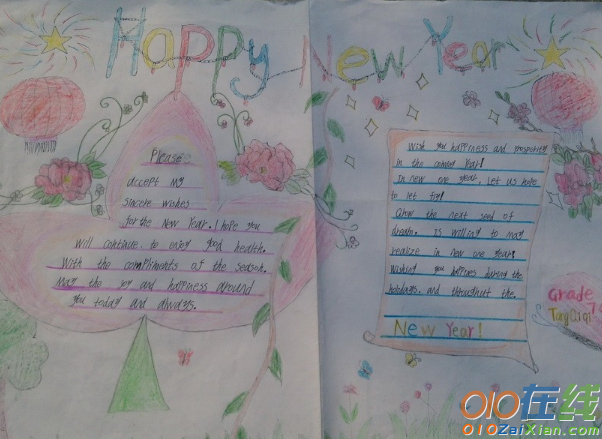 Happy New Year
Please
accept my
sincere wishes
for the New Year. I hope you
will continue to enjoy good health.
With the compliments of the season.
May the joy and happiness around
you today and always.
Wish you happiness and prosperity
in the coming Year!
In new one year, Let us hope
to let
Grow the next seed of
dream. is willing to may
realize in new one year!
Wishing you happines during the
holidays and throughout the.
New Year!
Grade 7
Tang Qiqi
010在线
010ZaiXian.com